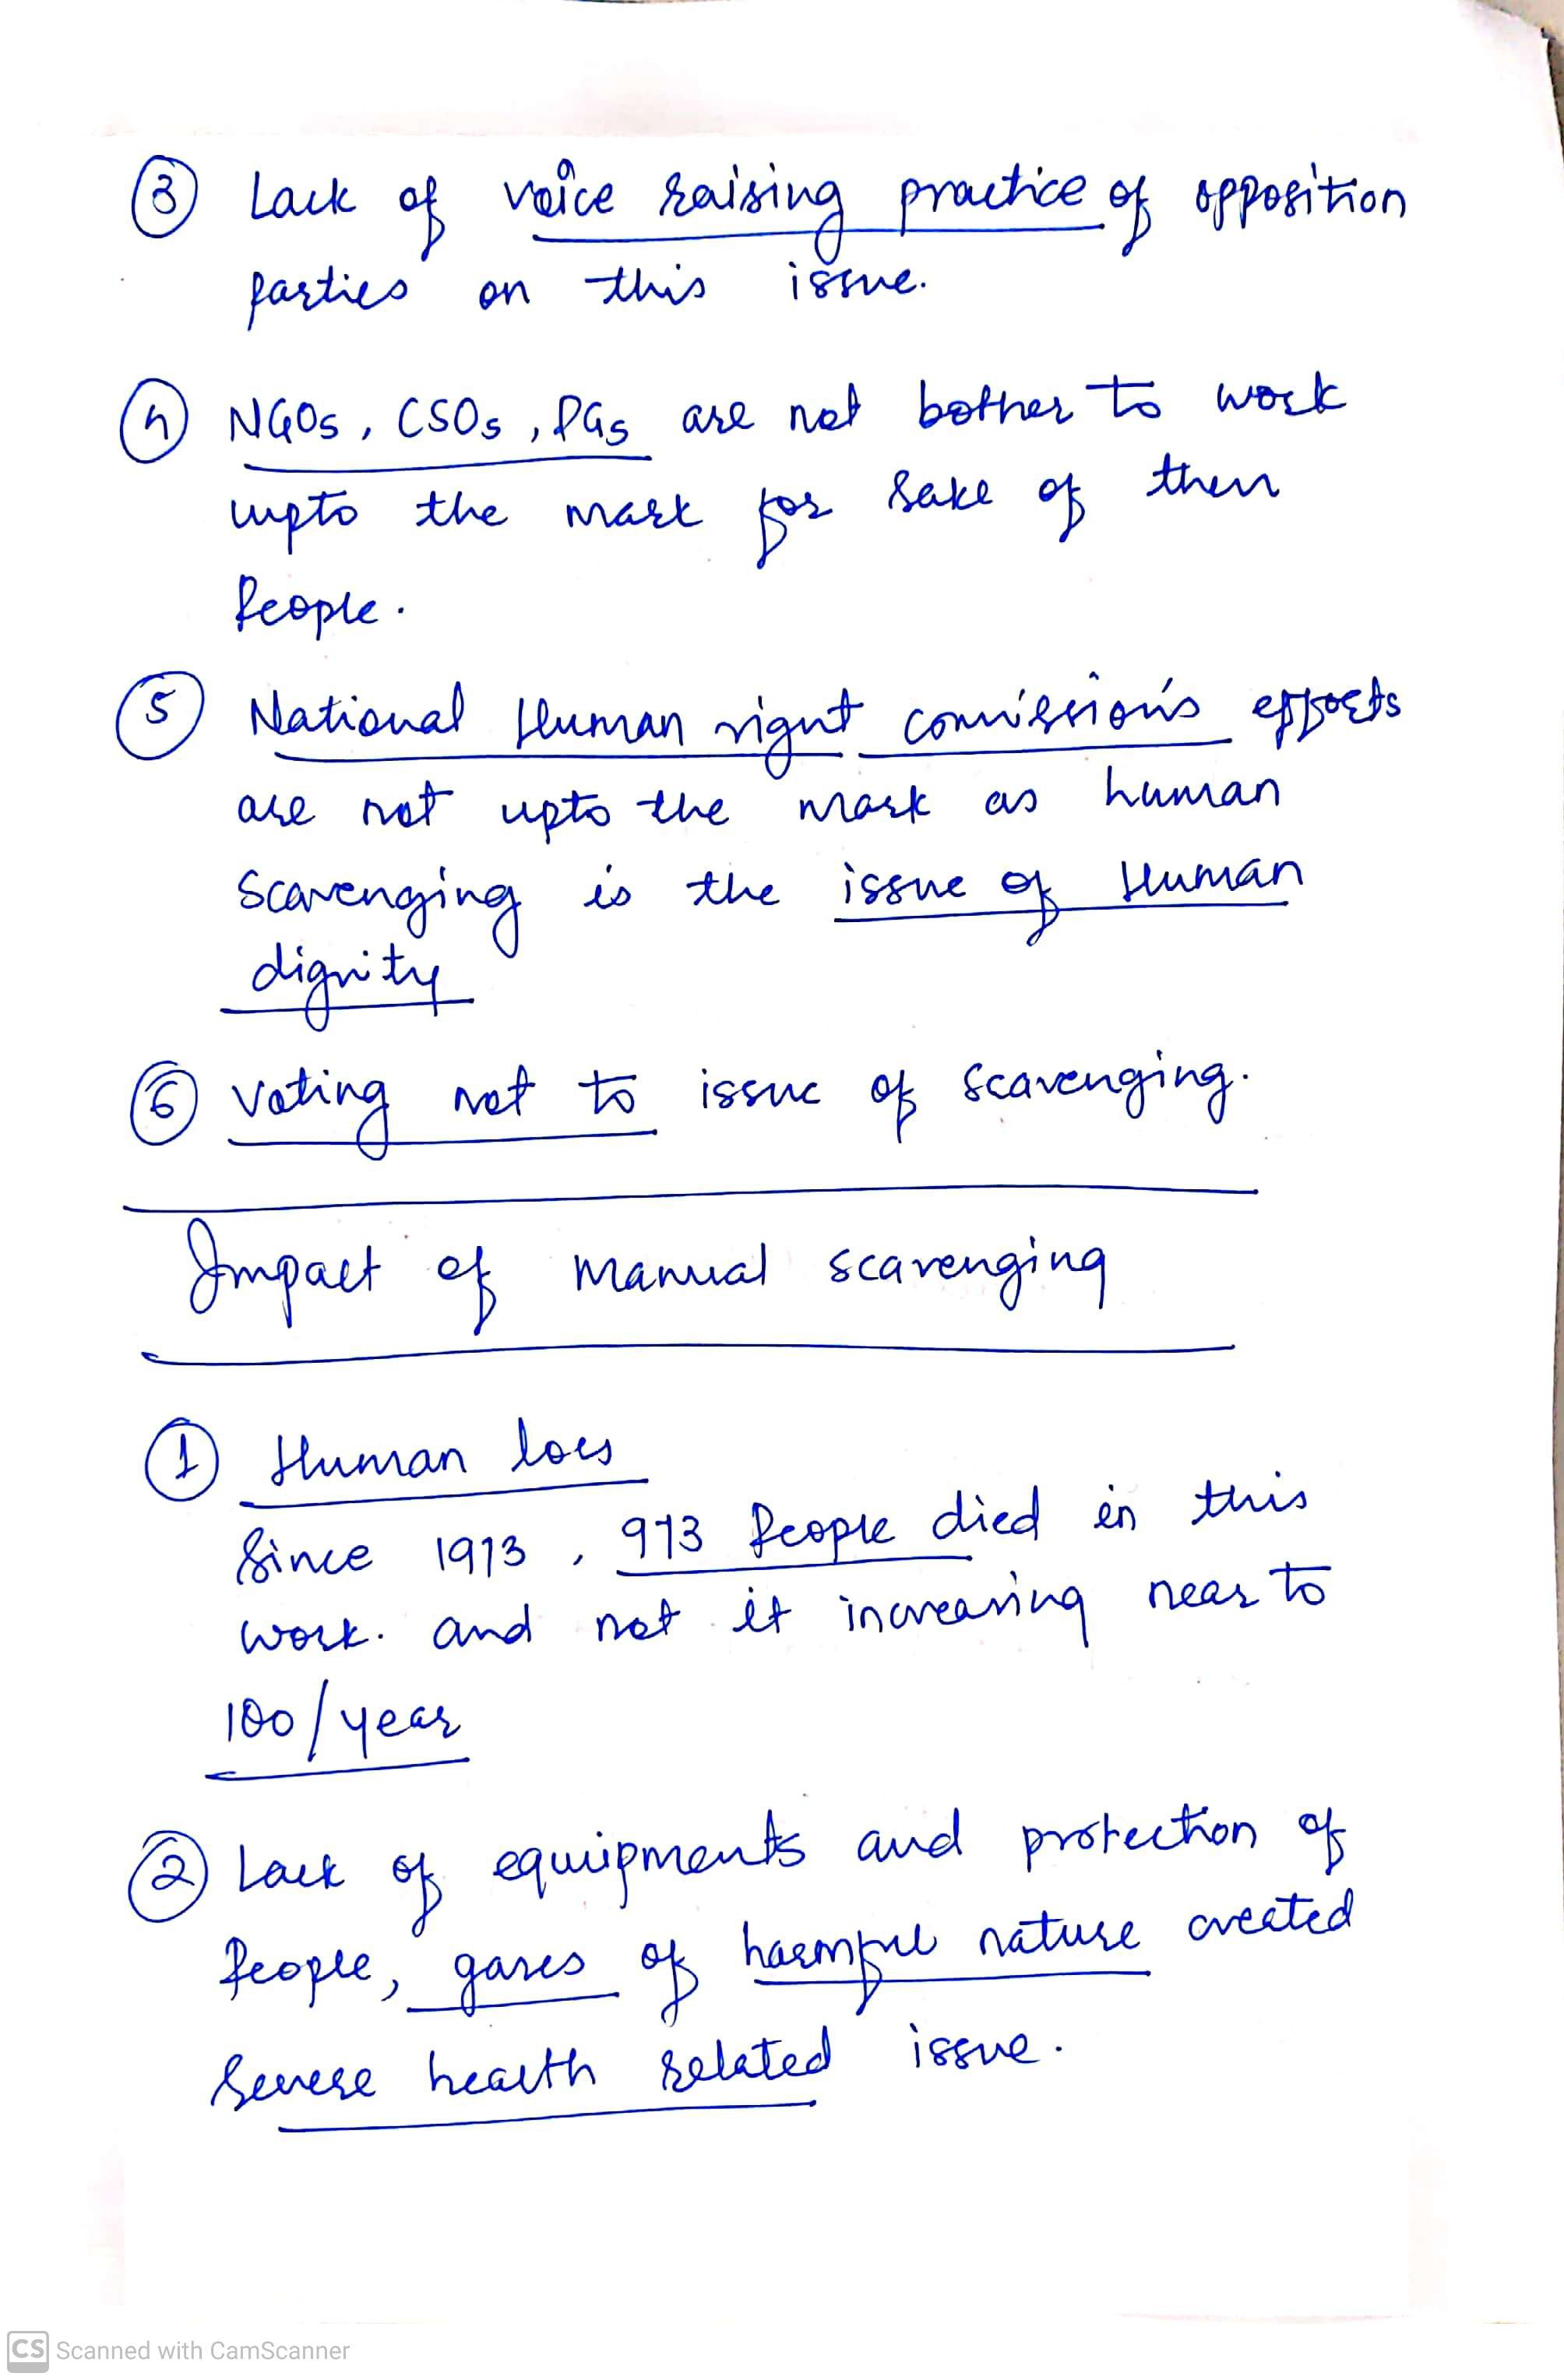 ③ Lack of voice raising practice of opposition
parties on this issue.
④ NGOs, CSOs, PGs are not bother to work
upto the mark for sake of then
People.
⑤ National Human right commission's efforts
are not upto the mark as human
scavenging is the issue of Human
dignity
⑥ Voting not to issue of scavenging.
Impact of manual scavenging
① Human loss
Since 1973, 973 People died in this
work. and not it increasing near to
100/year
② Lack of equipments and protection of
People, gases of harmful nature created
Severe health related issue.
CS Scanned with CamScanner